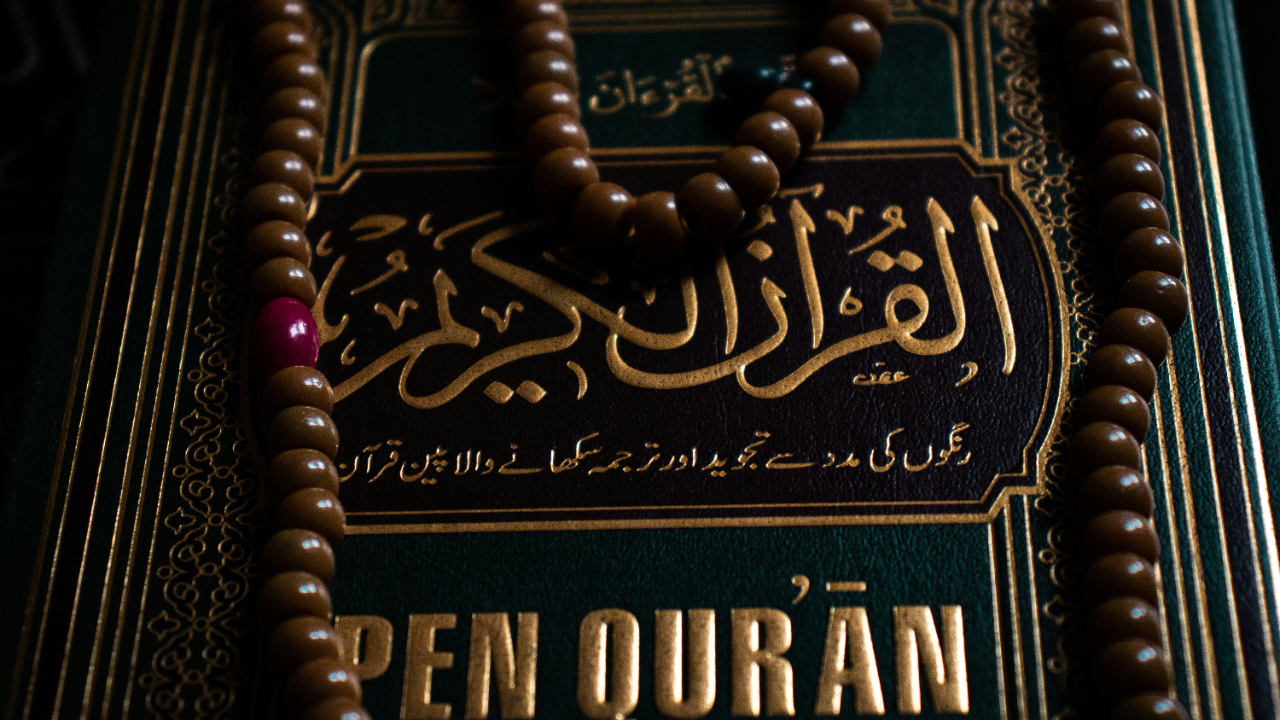 ٱلْقُرْءَانَ
القرآن الكريم
رنگوں کی مدد سے تجوید اور ترجمہ سکھانے والا پین قرآن
PEN QUR’ĀN